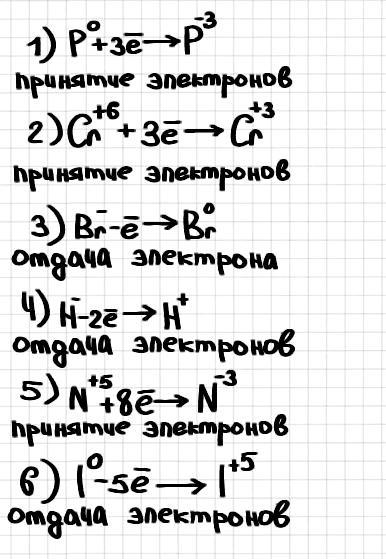 1) P⁰+3ē→P⁻³
принятие электронов
2) Cr⁺⁶ + 3ē → Cr⁺³
принятие электронов
3) Br⁻-ē→Br⁰
отдача электрона
4) H⁻-2ē→H⁺
отдача электронов
5) N⁺⁵+8ē→N⁻³
принятие электронов
6) I⁰-5ē→I⁺⁵
отдача электронов